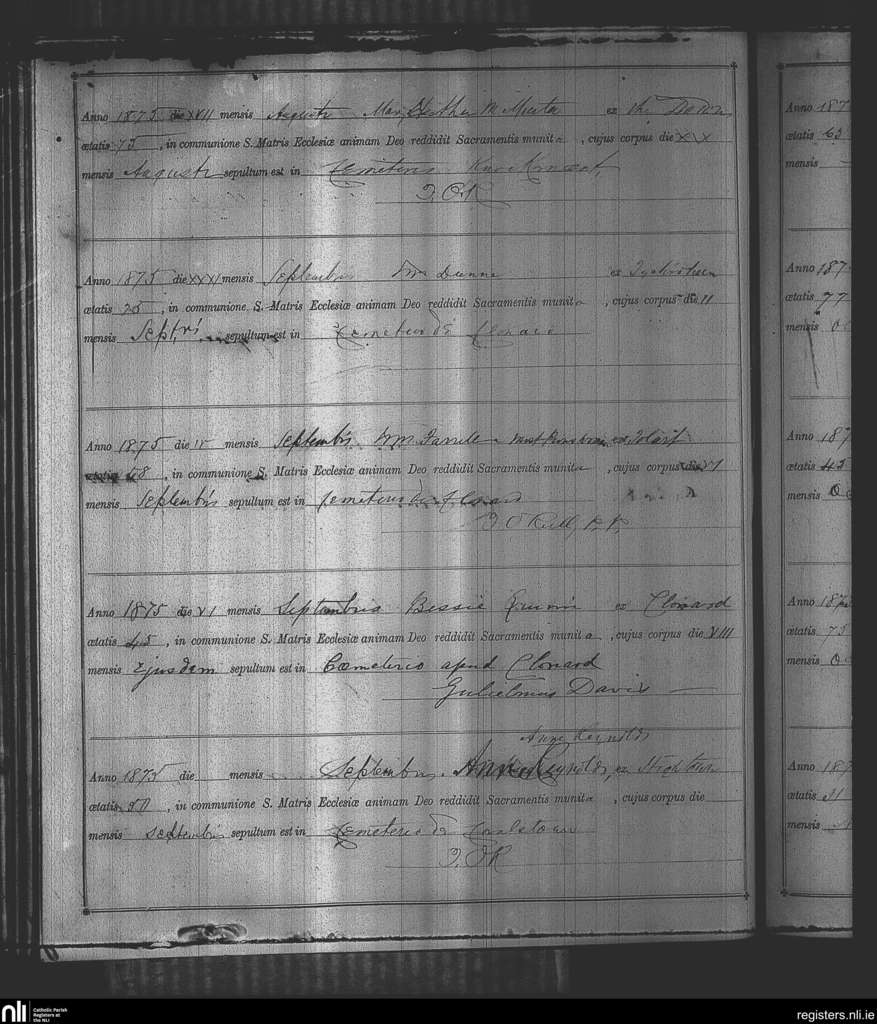 Anno 1875 die XVII mensis Augusti Mary Heather M ex the Down
ætatis 75, in communione S. Matris Ecclesiæ animam Deo reddidit Sacramentis munita, cujus corpus die XX
mensis Augusti sepultum est in Cemeterio
J. O'R
Anno 1875 die XXXI mensis Septembris Wm Dunne ex
ætatis 25, in communione S. Matris Ecclesiæ animam Deo reddidit Sacramentis munita, cujus corpus die II
mensis Septris sepultum est in Cemeterio de Clonard
Anno 1875 die IV mensis Septembris Wm Farrell
ætatis 58, in communione S. Matris Ecclesiæ animam Deo reddidit Sacramentis munita, cujus corpus die VI
mensis Septembris sepultum est in Cemeterio de Clonard
J O'Reilly, P.P.
Anno 1875 die VI mensis Septembris Bessie ex Clonard
ætatis 45, in communione S. Matris Ecclesiæ animam Deo reddidit Sacramentis munita, cujus corpus die VIII
mensis Ejusdem sepultum est in Cœmeterio apud Clonard
Gulielmus Davis
Anne Reynolds
Anno 1875 die mensis Septembris Anne Reynolds, ex
ætatis 50, in communione S. Matris Ecclesiæ animam Deo reddidit Sacramentis munita, cujus corpus die
mensis Septembris sepultum est in Cemeterio de
J. O'R
Anno 187
ætatis 63
mensis
Anno 187
ætatis 77
mensis Oc
Anno 187
ætatis 45
mensis Oc
Anno 187
ætatis 75
mensis Oc
Anno 187
ætatis
mensis
nli Catholic Parish
Registers at
the NLI
registers.nli.ie